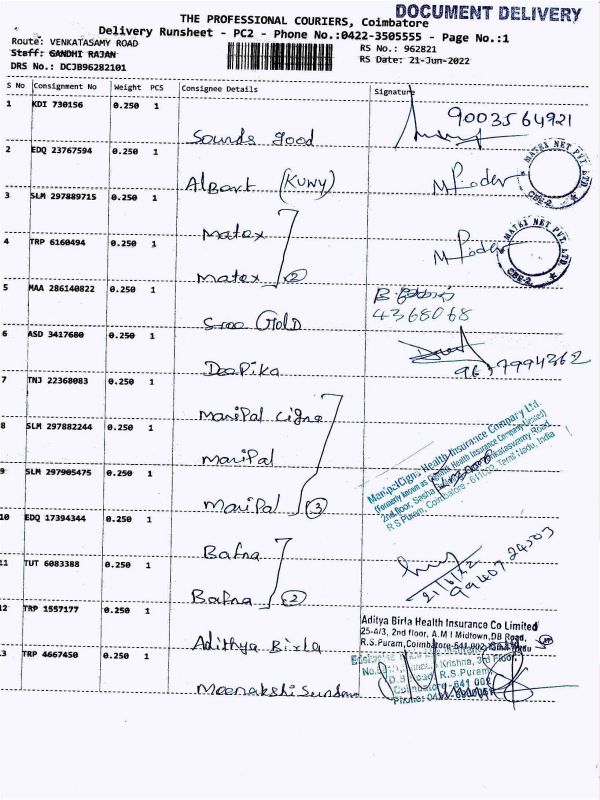 DOCUMENT DELIVERY
THE PROFESSIONAL COURIERS, Coimbatore
Delivery Runsheet - PC2 - Phone No.:0422-3505555 - Page No.:1
Route: VENKATASAMY ROAD
RS No.: 962821
Staff: GANDHI RAJAN
RS Date: 21-Jun-2022
DRS No.: DCJB96282101
S No Consignment No Weight PCS Consignee Details Signature
1 KDI 730156 0.250 1
Sounds good 9003564921
2 EDQ 23767594 0.250 1
Albart (Kuwy)
MATRI NET PVT. LTD
CBE-2
3 SLM 297889715 0.250 1
Matex
4 TRP 6160494 0.250 1
Matex 2
MATRI NET PVT. LTD
CBE-2
5 MAA 286140822 0.250 1
Sree Gold
4368068
6 ASD 3417680 0.250 1
Deepika
7 TNJ 22368083 0.250 1
Manipal Cigna
8 SLM 297882244 0.250 1
Manipal
9 SLM 297905475 0.250 1
Manipal 3
ManipalCigna Health Insurance Company Ltd.
R S Puram, Coimbatore - 641002, Tamil Nadu, India
10 EDQ 17394344 0.250 1
Bafna
11 TUT 6083388 0.250 1
Bafna 2
21/6/22
99407 24503
12 TRP 1557177 0.250 1
Adithya Birla
Aditya Birla Health Insurance Co Limited
25-A/3, 2nd floor, A.M I Midtown, DB Road,
R.S.Puram, Coimbatore-641 002, Tamil Nadu
13 TRP 4667450 0.250 1
Meenakshi Sundaram
Krishna, 3rd Floor,
D.B. Road, R.S.Puram,
Coimbatore - 641 002